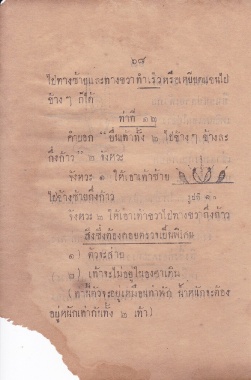 ๖๘
ไปทางซ้ายและทางขวา ทำเร็วหรือเคยชดผ่อนไป
ช้าง ๆ ก็ได้
ท่าที่ ๑๒
คำบอก “ยืนเท้าทั้ง ๒ ไปข้าง ๆ ข้างละ
กึ่งก้าว” ๒ จังหวะ
จังหวะ ๑ ให้เอาเท้าซ้าย
ไปข้างซ้ายกึ่งก้าว รูปที่ ๑๐
จังหวะ ๒ ให้เอาเท้าขวาไปทางขวา กึ่งก้าว
สิ่งซึ่งต้องคอยตรวจเป็นพิเศษ
๑) ตัวจะส่าย
๒) เท้าจะไม่อยู่ในองศาเดิม
(ท่านี้ตัวจะอยู่เหมือนท่าพัก น้ำหนักจะต้อง
อยู่หนักเท่ากันทั้ง ๒ เท้า)